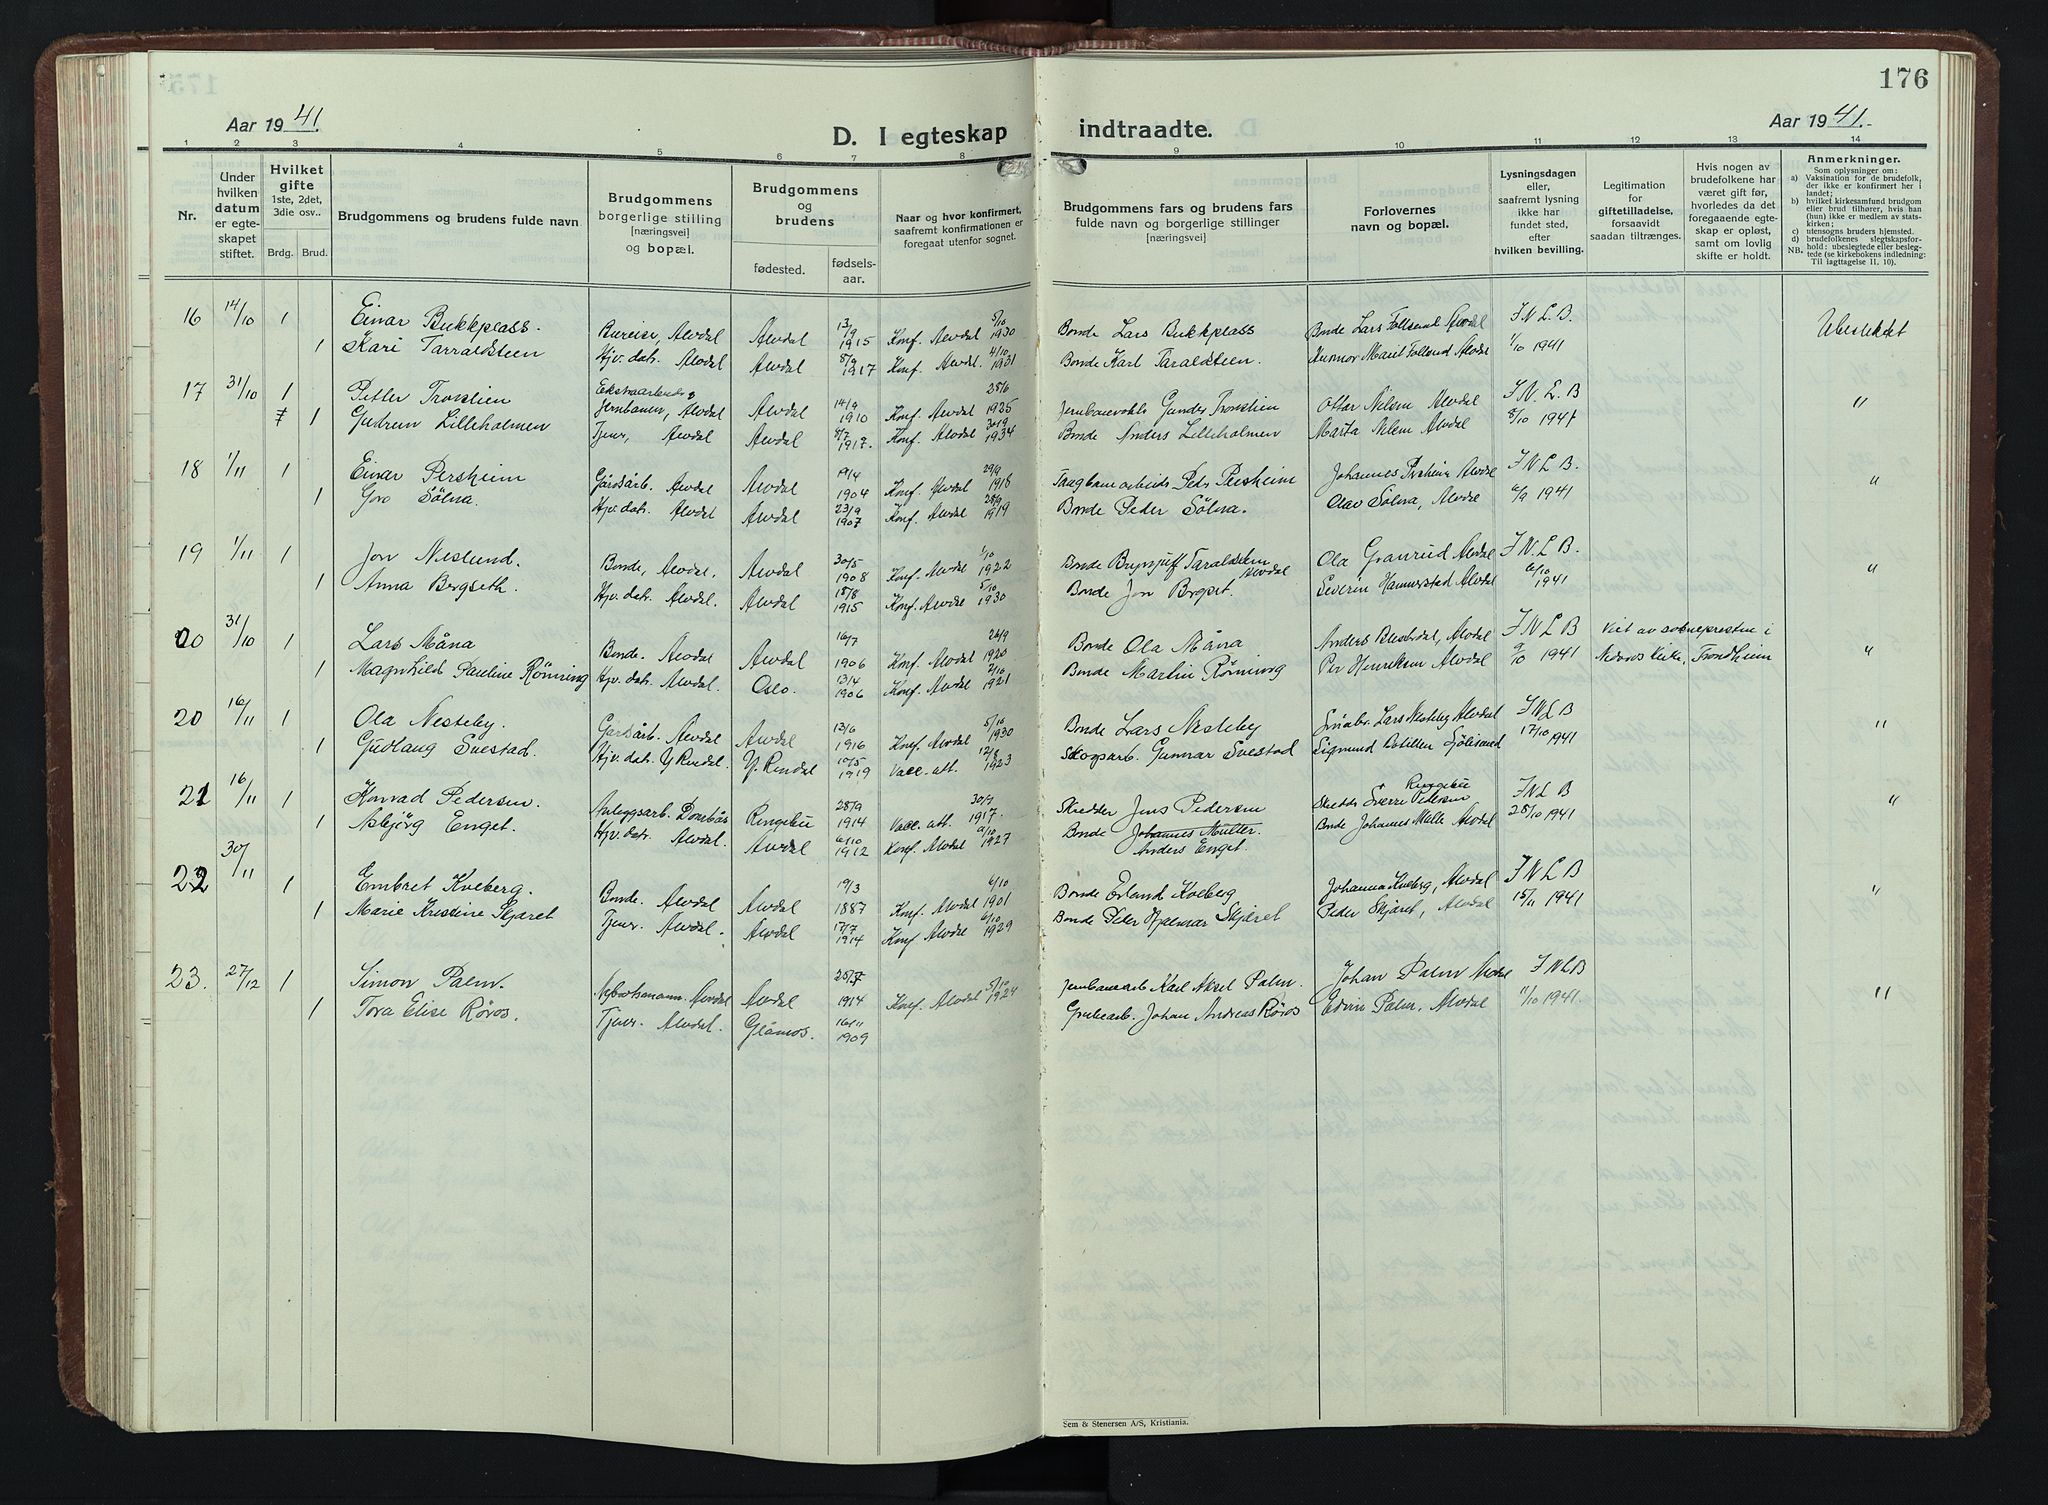 176
Aar 1941.
D. I egteskap indtraadte.
Aar 1941.
1 2 3 4 5 6 7 8 9 10 11 12 13 14
Nr.
Under hvilken datum er egteskapet stiftet.
Hvilket gifte 1ste, 2det, 3die osv..
Brdg. Brud.
Brudgommens og brudens fulde navn
Brudgommens borgerlige stilling [næringsvei] og bopæl.
Brudgommens og brudens
fødested.
fødselsaar.
Naar og hvor konfirmert, saafremt konfirmationen er foregaat utenfor sognet.
Brudgommens fars og brudens fars fulde navn og borgerlige stillinger [næringsvei]
Forlovernes navn og bopæl.
Lysningsdagen eller, saafremt lysning ikke har fundet sted, efter hvilken bevilling.
Legitimation for giftetilladelse, forsaavidt saadan tiltrænges.
Hvis nogen av brudefolkene har været gift før, hvorledes da det foregaaende egteskap er opløst, samt om lovlig skifte er holdt.
Anmerkninger.
Som oplysninger om:
a) Vaksination for de brudefolk, der ikke er konfirmert her i landet;
b) hvilket kirkesamfund brudgom eller brud tilhører, hvis han (hun) ikke er medlem av statskirken;
c) utensogns bruders hjemsted.
d) brudefolkenes slegtskapsforhold: ubeslegtede eller beslegtede (se kirkebokens indledning: NB. Til iagttagelse II, 10).
16 14/10 1 Einar Bukkplass. Alvdal Alvdal 13/9 1915 Konf. Alvdal 5/10 1930 Bonde Lars Bukkplass Bonde Lars Follsund Alvdal F.N.L.B. Ubeslektet
1 Kari Tarraldsteen Hjv. datr. Alvdal Alvdal 8/9 1917 Konf. Alvdal. 4/10 1931 Bonde Karl Taraldsteen. Marit Alvdal 1/10 1941
17 31/10 1 Petter Tronslien Ekstraarbeider Jernbanen, Alvdal Alvdal 14/9 1910 Konf. Alvdal 1925 Gunder Tronslien Ottar Nilsen Alvdal F.N.L.B "
1 Gudrun Lilleholmen Tjener, Alvdal Alvdal 8/7 1917. Konf. Alvdal 1934 Bonde Anders Lilleholmen Marta Nilsen Alvdal 8/10 1941
18 1/11 1 Einar Persheim Gårdsarb. Alvdal Alvdal 19/4 1904 Konf. Alvdal 29/9 1918 Persheim Johannes Persheim Alvdal F.N.L.B. "
1 Goro Sölna. Hjv. datr. Alvdal Alvdal 23/9 1907 Konf. Alvdal 28/9 1919 Bonde Peder Sölna. Olav Sölna, Alvdal 6/9 1941
19 1/11 1 Jon Neslund. Bonde, Alvdal. Alvdal 30/5 1908 Konf. Alvdal 1/10 1922 Bonde Brynjulf Taraldsteen Alvdal Ola Granrud Alvdal F.N.L.B. "
1 Anna Bergseth. Hjv. datr. Alvdal. Alvdal 18/8 1915 Konf. Alvdal 5/10 1930 Bonde Jon Bergset. Severin Hammerstad Alvdal 6/10 1941
20 31/10 1 Lars Måna Bonde. Alvdal Alvdal 16/7 1906 Konf. Alvdal 26/9 1920 Bonde Ola Måna Anders Alvdal F.N.L.B Viet av soknepresten i "
1 Magnhild Pauline Rönning Hjv. datr. Alvdal. Oslo. 13/4 1906 Konf. Alvdal 2/10 1921 Bonde Martin Rönning Per Henriksen Alvdal 9/10 1941 Trondheim
20 16/11 1 Ola Nesteby. Gårdsarb. Alvdal Alvdal 13/6 1916 Konf. Alvdal 5/10 1930 Bonde Lars Nesteby Småbr. Lars Nesteby Alvdal F.N.L.B "
1 Gudlaug Svestad. Hjv. datr. Y. Rendal. Y. Rendal 10/5 1919 Vacc. att. 12/8 1923 Skogsarb. Gunnar Svestad Sigmund Sjölisand 17/10 1941
21 16/11 1 Konrad Pedersen. Anleggsarb. Dombås Ringebu 28/9 1914 Vacc. att. 30/7 1917. Skredder Jens Pedersen Skredder Sverre Pedersen Ringebu F.N.L.B "
1 Asbjörg Enget. Hjv. datr. Alvdal. Alvdal 6/10 1912 Konf. Alvdal 1927 Bonde Anders Enget. Bonde Johannes Alvdal 28/10 1941
22 30/11 1 Embret Kveberg. Bonde. Alvdal Alvdal 19/3 1887 Konf. Alvdal 6/10 1901 Bonde Erland Kveberg Kveberg, Alvdal F.N.L.B "
1 Marie Kristine Skjæret Tjener. Alvdal. Alvdal 17/7 1914 Konf. Alvdal 6/10 1929 Bonde Peder Hjalmar Skjæret Peder Skjæret, Alvdal 15/11 1941
23. 27/12 1 Simon Palm. Alvdal Alvdal 1914 Konf. Alvdal 5/10 1924 Jernbanearb Karl Aksel Palm. Johan Palm Alvdal F.N.L.B "
1 Tora Elise Röros. Tjener. Alvdal. Glåmos. 16/11 1909 Grubearb. Johan Andreas Röros Edvin Palm, Alvdal 11/10 1941.
Sem & Stenersen A/S, Kristiania.